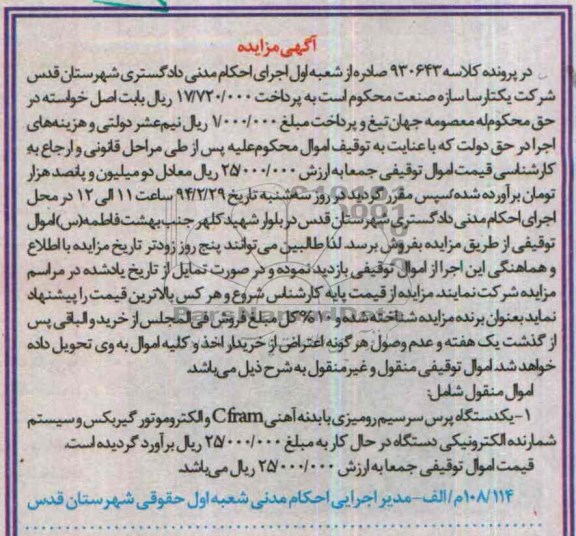 آگهی مزایده
در پرونده کلاسه ۹۳۰۶۴۳ صادره از شعبه اول اجرای احکام مدنی دادگستری شهرستان قدس
شرکت یکتارسا سازه صنعت محکوم است به پرداخت ۱۷/۷۲۰/۰۰۰ ریال بابت اصل خواسته در
حق محکوم‌له معصومه جهان تیغ و پرداخت مبلغ ۱/۰۰۰/۰۰۰ ریال نیم‌عشر دولتی و هزینه‌های
اجرا در حق دولت که با عنایت به توقیف اموال محکوم‌علیه پس از طی مراحل قانونی و ارجاع به
کارشناسی قیمت اموال توقیفی جمعا به ارزش ۲۵/۰۰۰/۰۰۰ ریال معادل دو میلیون و پانصد هزار
تومان برآورده شده/سپس مقرر گردید در روز سه‌شنبه تاریخ ۹۴/۲/۲۹ ساعت ۱۱ الی ۱۲ در محل
اجرای احکام مدنی دادگستری شهرستان قدس در بلوار شهید کلهر جنب بهشت فاطمه(س) اموال
توقیفی از طریق مزایده بفروش برسد. لذا طالبین می‌توانند پنج روز زودتر تاریخ مزایده با اطلاع
و هماهنگی این اجرا از اموال توقیفی بازدید نموده و در صورت تمایل از تاریخ یادشده در مراسم
مزایده شرکت نمایند. مزایده از قیمت پایه کارشناس شروع و هر کس بالاترین قیمت را پیشنهاد
نماید بعنوان برنده مزایده شناخته شده و ۱۰% کل مبلغ فروش فی‌المجلس از خرید و الباقی پس
از گذشت یک هفته و عدم وصول هر گونه اعتراض از خریدار اخذ و کلیه اموال به وی تحویل داده
خواهد شد. اموال توقیفی منقول و غیرمنقول به شرح ذیل می‌باشد.
اموال منقول شامل:
۱- یکدستگاه پرس سرسیم رومیزی با بدنه آهنی Cfram و الکتروموتور گیربکس و سیستم
شمارنده الکترونیکی دستگاه در حال کار به مبلغ ۲۵/۰۰۰/۰۰۰ ریال برآورد گردیده است.
قیمت اموال توقیفی جمعا به ارزش ۲۵/۰۰۰/۰۰۰ ریال می‌باشد.
۱۰۸/۱۱۴م/الف-مدیر اجرایی احکام مدنی شعبه اول حقوقی شهرستان قدس